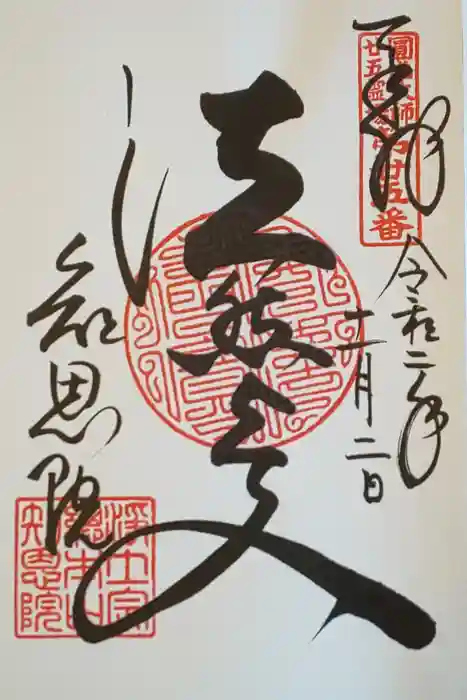 奉拝
圓光大師
廿五霊場第廿五番
令和二年
十一月二日
法然上人
知恩院
浄土宗
總本山
知恩院